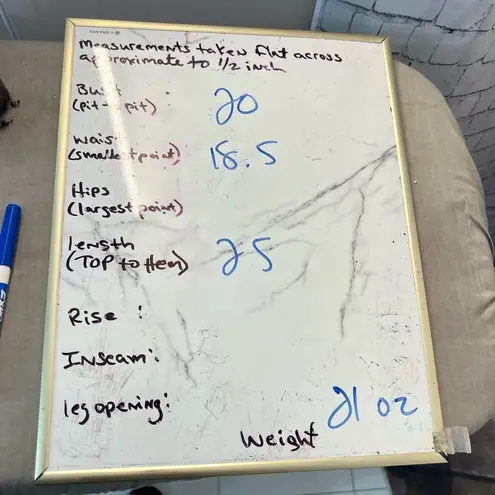 Measurements taken flat across
approximate to 1/2 inch
Bust :
(pit to pit) 20
waist
(smallest point) 18.5
Hips
(largest point)
length
(TOP to Hem) 25
Rise :
Inseam :
leg opening :
21 oz
Weight